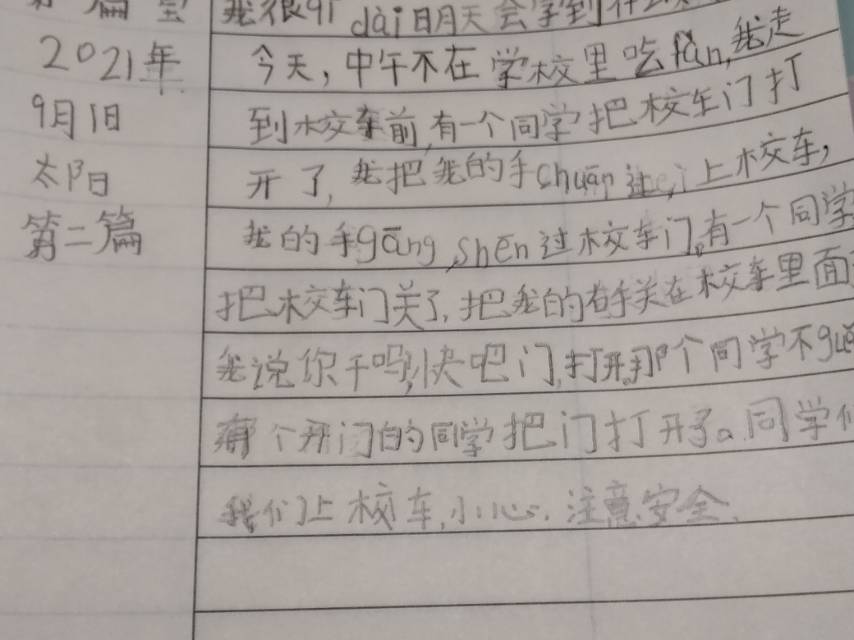 我很qī dài明天会学到什么
2021年
今天，中午不在学校里吃fàn,我走
9月1日
到校车前,有一个同学把校车门打
太阳
开了,我把我的手chuān 进 上校车,
第二篇
我的手gāng,shēn过校车门。有一个同学
把校车门关了,把我的右手关在校车里面
我说你干吗,快吧门,打开,那个同学不guǎ
有个开门的同学把门打开了。同学们
我们上校车,小心.注意安全.